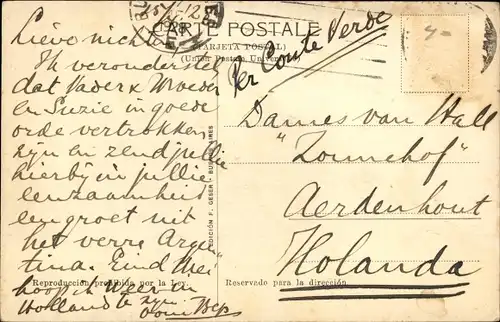 CARTE POSTALE
(TARJETA POSTAL)
(Union Postale Universelle)
Per Conte Verde
4-
Lieve nichten
Ik veronderstel
dat Vader & Moeder
en Suzie in goede
orde vertrokken
zijn en zend jullie
hierbij in jullie
eenzaamheid
een groet uit
het verre Argen
tina. Eind Mei
hoop ik weer in
Holland te zijn
oom Bep
Dames van Hall
"Zonnehof"
Aerdenhout
Holanda
EDICIÓN F. GESER - BUENOS AIRES
Reproducción prohibida por la Ley
Reservado para la dirección.